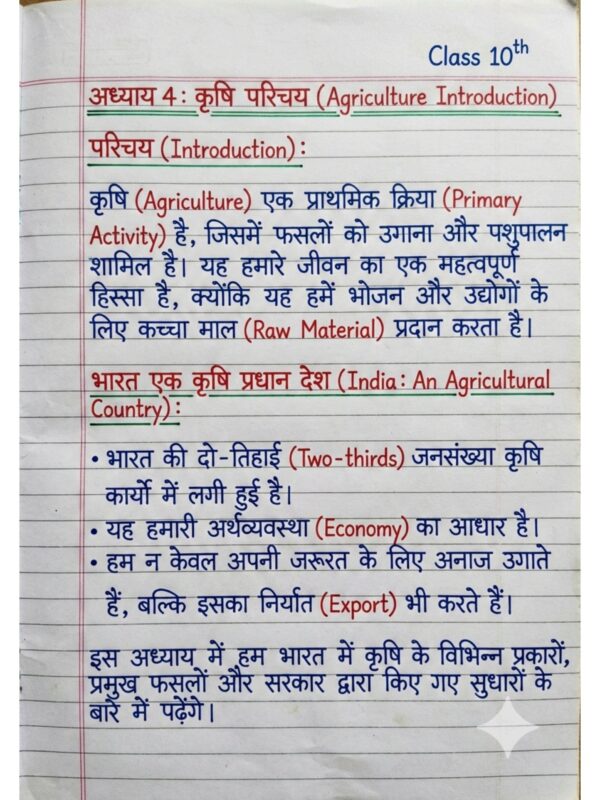 Class 10th
अध्याय 4: कृषि परिचय (Agriculture Introduction)
परिचय (Introduction):
कृषि (Agriculture) एक प्राथमिक क्रिया (Primary
Activity) है, जिसमें फसलों को उगाना और पशुपालन
शामिल है। यह हमारे जीवन का एक महत्वपूर्ण
हिस्सा है, क्योंकि यह हमें भोजन और उद्योगों के
लिए कच्चा माल (Raw Material) प्रदान करता है।
भारत एक कृषि प्रधान देश (India: An Agricultural
Country):
• भारत की दो-तिहाई (Two-thirds) जनसंख्या कृषि
कार्यो में लगी हुई है।
• यह हमारी अर्थव्यवस्था (Economy) का आधार है।
• हम न केवल अपनी जरूरत के लिए अनाज उगाते
हैं, बल्कि इसका निर्यात (Export) भी करते हैं।
इस अध्याय में हम भारत में कृषि के विभिन्न प्रकारों,
प्रमुख फसलों और सरकार द्वारा किए गए सुधारों के
बारे में पढ़ेंगे।